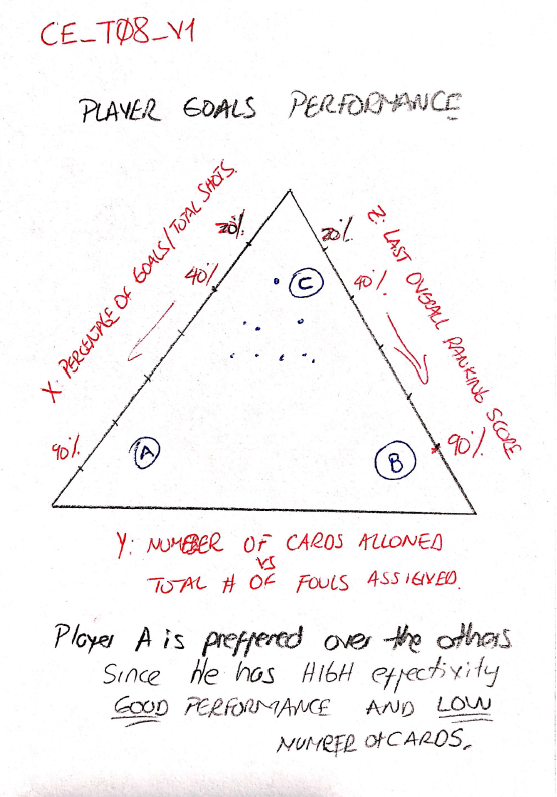 CE_TØ8_V1
PLAYER GOALS PERFORMANCE
X: PERCENTAGE OF GOALS/TOTAL SHOTS.
Z: LAST OVERALL RANKING SCORE
20%
20%
40%
40%
C
90%
90%
A
B
Y: NUMBER OF CARDS ALLONED
VS
TOTAL # OF FOULS ASSIGNED.
Player A is preffered over the others
Since He has HIGH effectivity
GOOD PERFORMANCE AND LOW
NUMBER of CARDS.